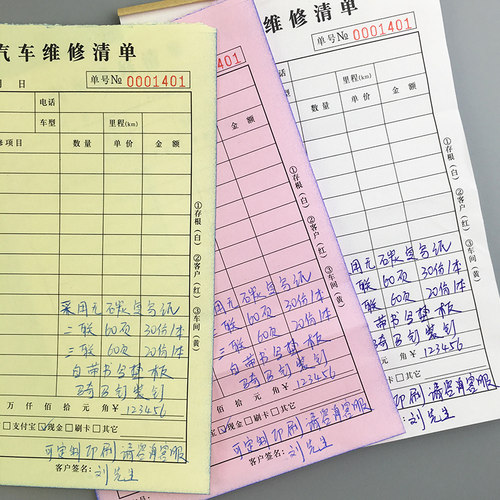 汽车维修清单
月 日
单号№ 0001401
电话
车型
里程(km)
修项目
数量
单价
金额
①存根(白)②客户(红)③车间(黄)
采用无碳复写纸
二联 60页 30份1本
三联 60页 20份1本
自带书写垫板
骑马钉装钉
万仟佰拾元角¥123456
□支付宝☑现金□刷卡□其它
可定制印刷 请咨询客服
客户签名: 刘先生
维修清单
单号№ 0001401
里程(km)
数量
单价
金额
①存根(白)②客户(红)③车间(黄)
用无碳复写纸
60页 30份1本
60页 20份1本
带书写垫板
骑马钉装钉
佰拾元角¥123456
现金□刷卡□其它
印刷 请咨询客服
刘先生
维修清单
单号№ 0001401
里程(km)
数量
单价
金额
①存根(白)②客户(红)③车间(黄)
用无碳复写纸
60页 30份1本
60页 20份1本
带书写垫板
马钉装钉
元角¥123456
□刷卡□其它
请咨询客服
刘先生